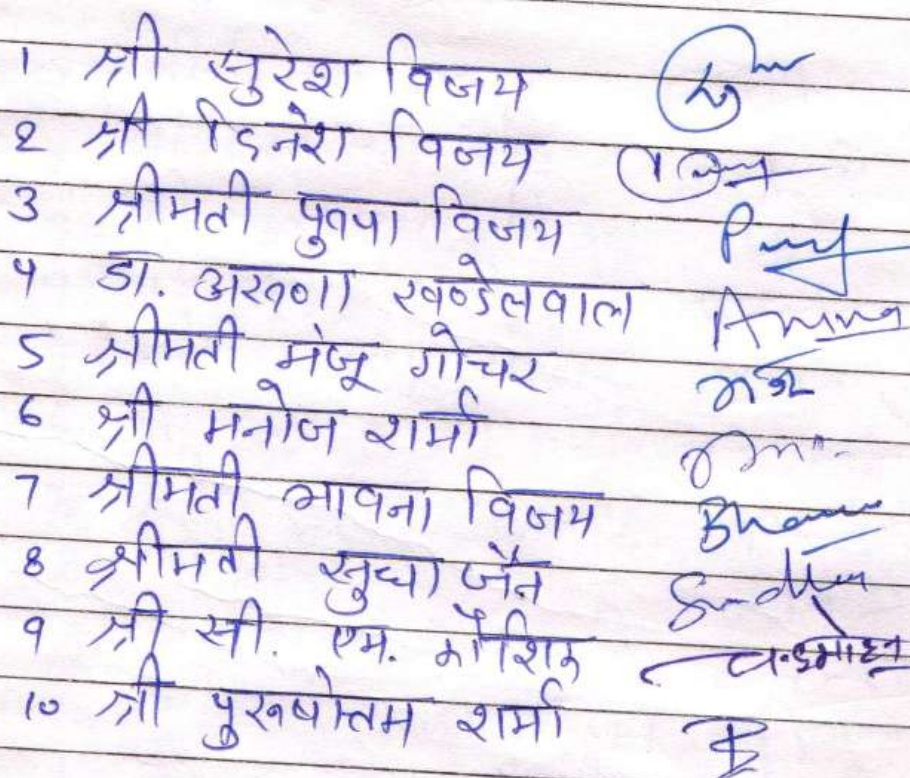 1 श्री सुरेश विजय
2 श्री दिनेश विजय
3 श्रीमती पुष्पा विजय
4 डा. अरूणा खण्डेलवाल Aruna
5 श्रीमती मंजू गोचर मंजू
6 श्री मनोज शर्मा
7 श्रीमती भावना विजय
8 श्रीमती सुधा जैन Sudha
9 श्री सी. एम. कौशिक
10 श्री पुरूषोत्तम शर्मा